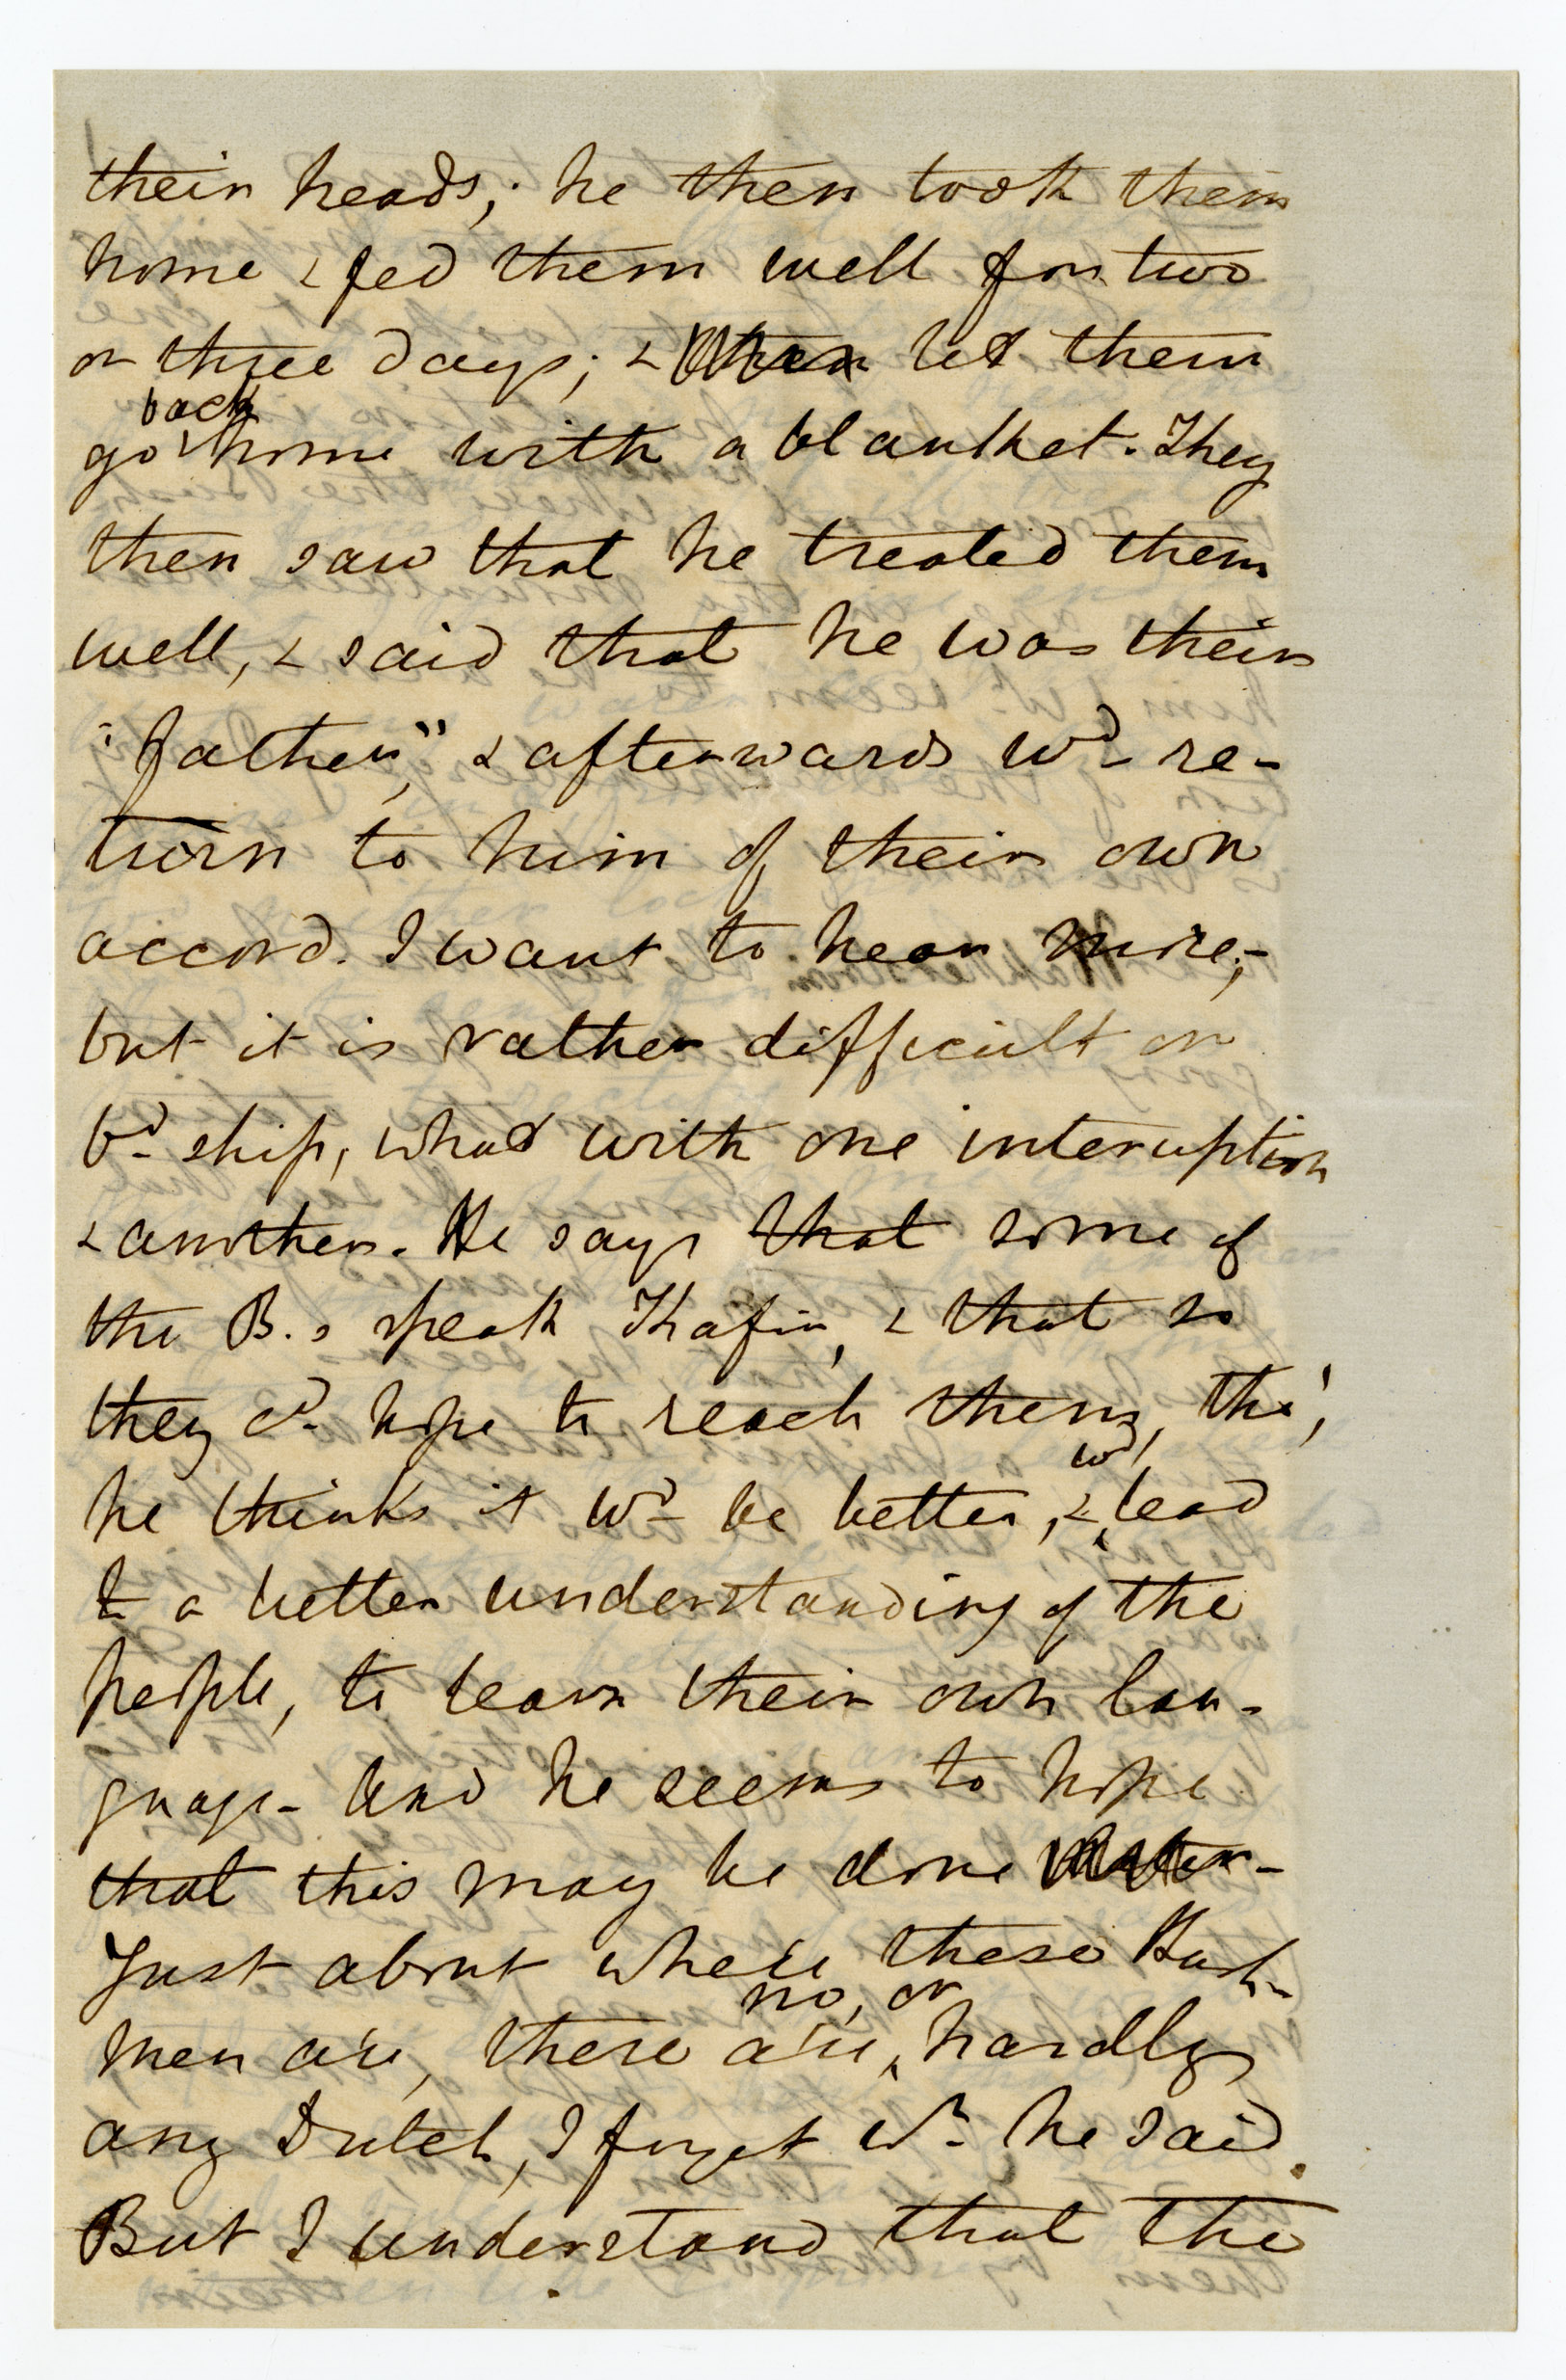 their heads; he then took them
home & fed them well for two
or three days; & then let them
back
go home with a blanket. They
then saw that he treated them
well, & said that he was their
"father", & afterwards wd. re-
turn to him of their own
accord. I want to hear more;-
but it is rather difficult on
bd. ship, what with one interuption
& another. He says that some of
the B.s speak Kafir, & that so
they cd. hope to reach them, tho',
wd.
he thinks it wd. be better, & lead
to a better understanding of the
people, to learn their own lan-
guage - And he seems to hope
that this may be done -
Just about where these Bush-
no, or
men are, there are hardly
any Dutch, I forget wh. he said.
But I understand that the